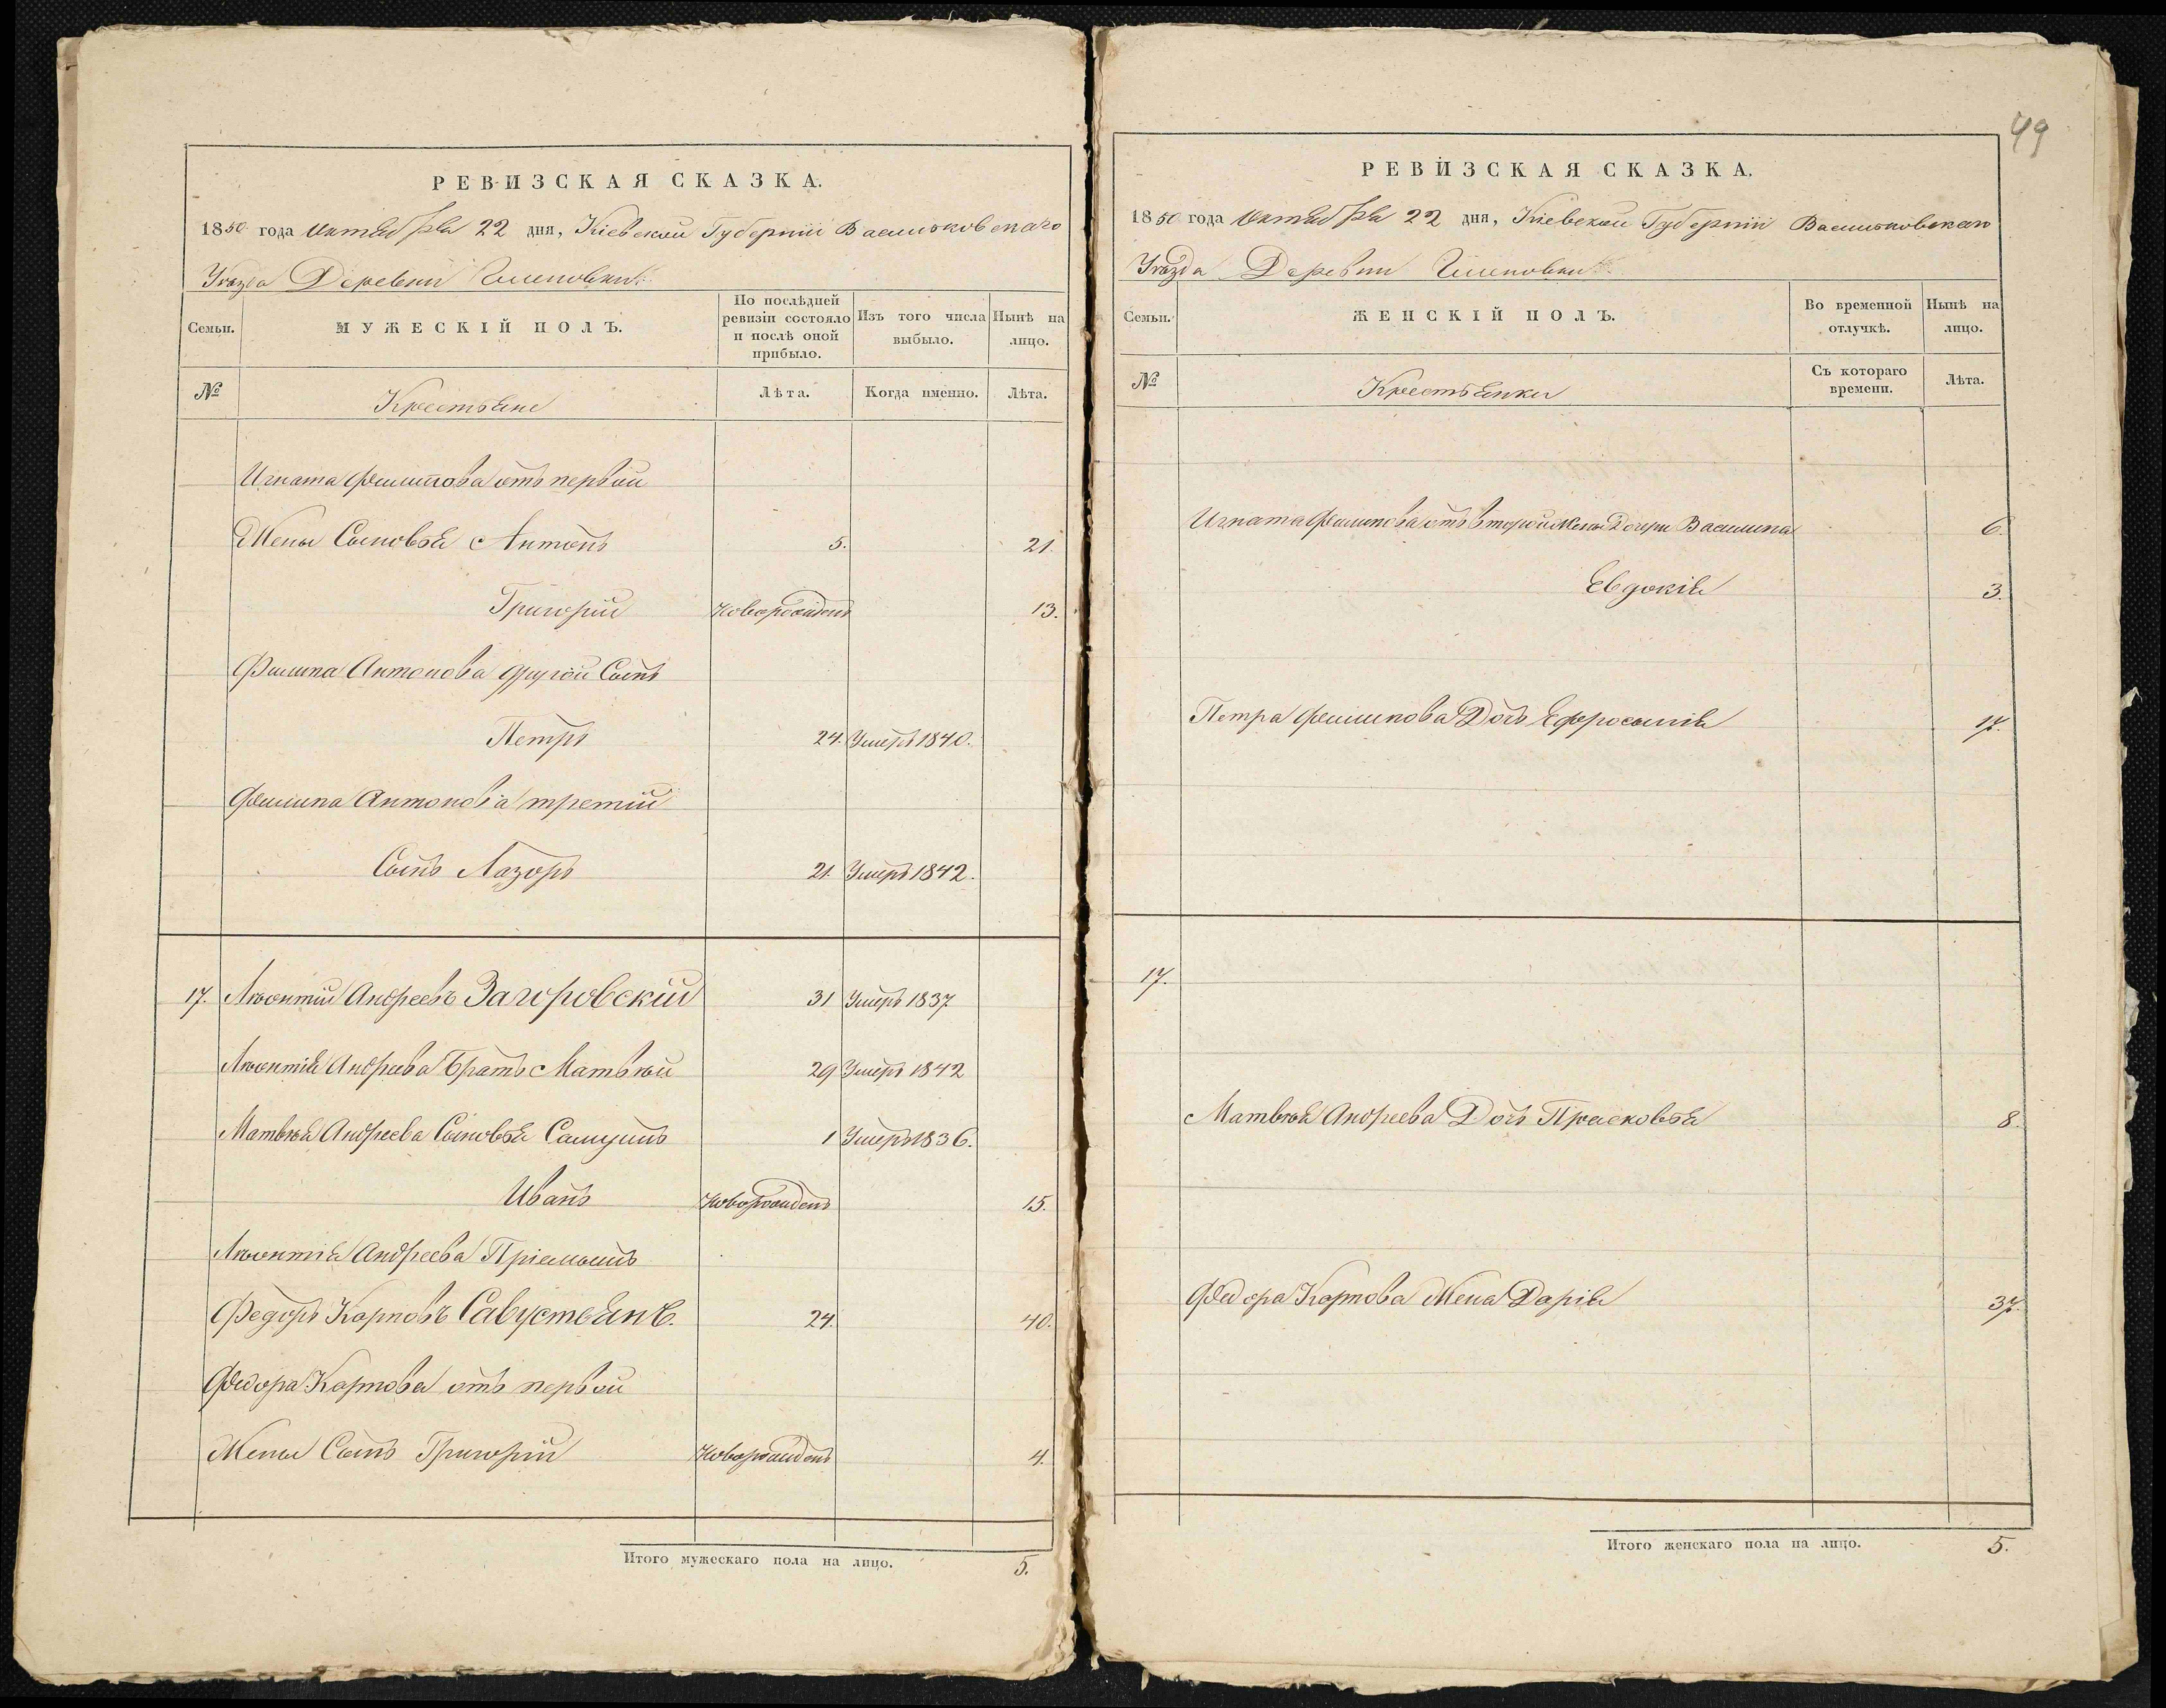 РЕВИЗСКАЯ СКАЗКА.
1850 года Октября 22 дня, Кіевской Губерніи Васильковскаго
Уѣзда Деревни
Семьи.
МУЖЕСКІЙ ПОЛЪ.
По послѣдней ревизіи состояло и послѣ оной прибыло.
Изъ того числа выбыло.
Нынѣ на лицо.
№
Крестьяне
Лѣта.
Когда именно.
Лѣта.
Игната Филипова отъ первой
Жены Сыновья Антонъ 5. 21.
Григорій новорожденъ 13.
Филипа Антонова другой Сынъ
Петръ 24. Умеръ 1840.
Филипа Антонова третій
Сынъ Лазоръ 21. Умеръ 1842.
17. Леонтій Андреевъ Загоровскій 31 Умеръ 1837
Леонтія Андреева Братъ Матвѣй 29 Умеръ 1842
Матвѣя Андреева Сыновья Самуилъ 1 Умеръ 1836.
Иванъ новорожденъ 15.
Леонтія Андреева Пріемышъ
Федоръ Карповъ Савустьянъ. 24. 40.
Федора Карпова отъ первой
Жены Сынъ Григорій новорожденъ 4.
Итого мужескаго пола на лицо. 5.
49
РЕВИЗСКАЯ СКАЗКА.
1850 года Октября 22 дня, Кіевской Губерніи Васильковскаго
Уѣзда Деревни
Семьи.
ЖЕНСКІЙ ПОЛЪ.
Во временной отлучкѣ.
Нынѣ на лицо.
№
Крестьянки
Съ котораго времени.
Лѣта.
Игната Филипова отъ второй Жены Дочери Василина 6.
Евдокія 3.
Петра Филипова Дочь Ефросинія 17.
17.
Матвѣя Андреева Дочь Прасковья 8.
Федора Карпова Жена Дарія 37.
Итого женскаго пола на лицо. 5.